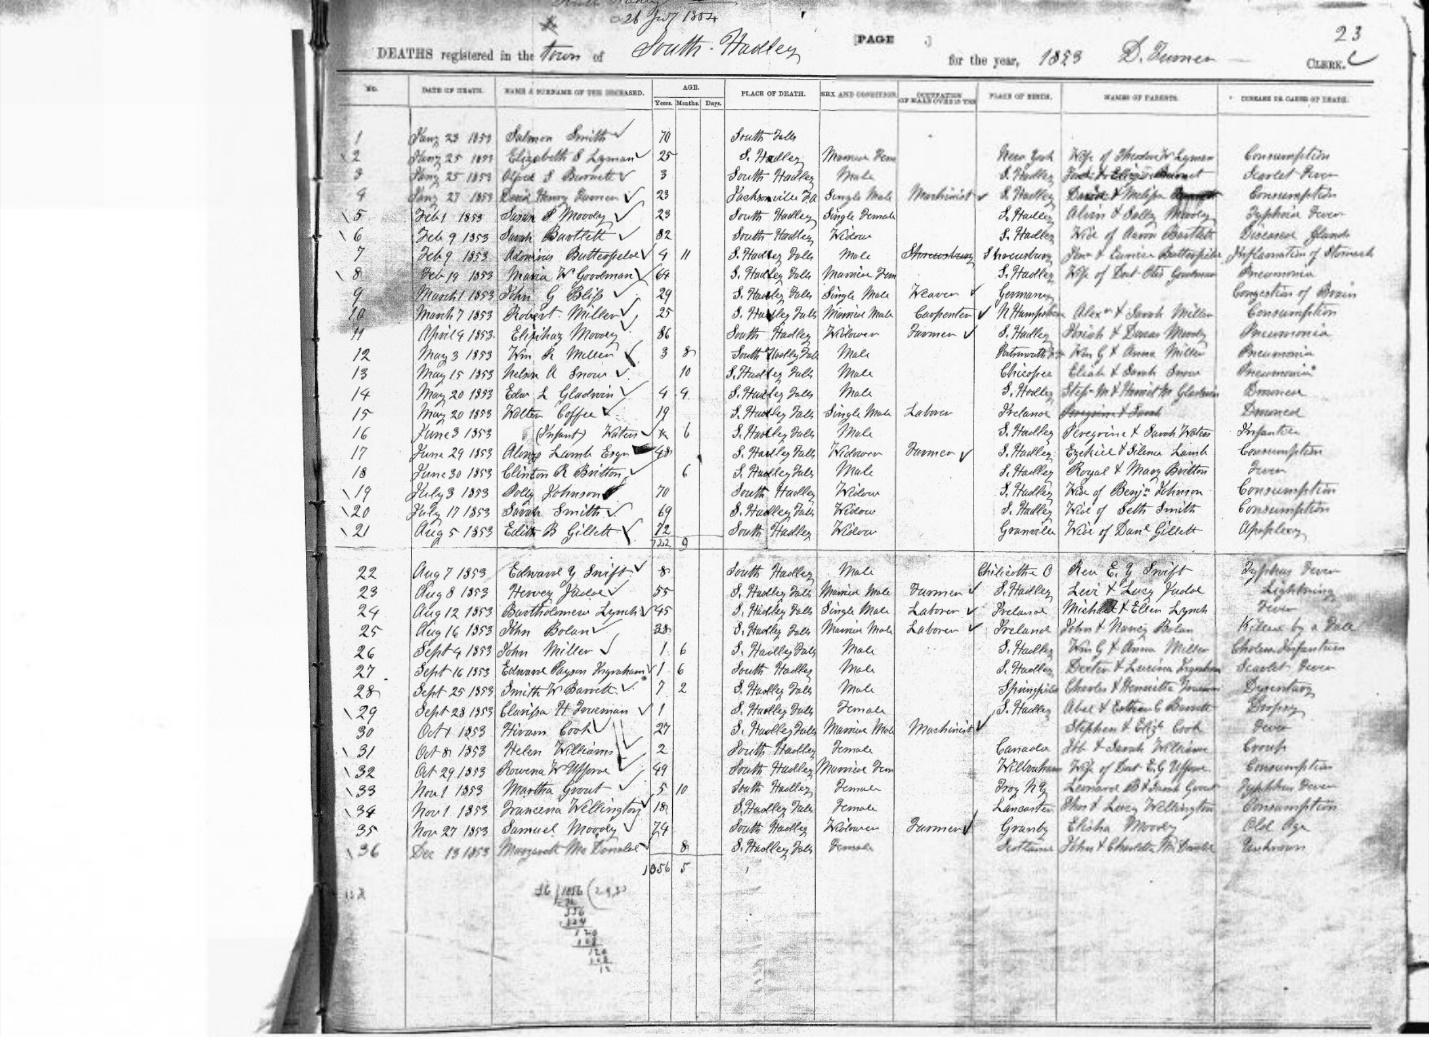 26 Jan 1854
23
DEATHS registered in the town of South Hadley [PAGE ] for the year, 1853 D. Turner CLERK.
NO. DATE OF DEATH. NAME & SURNAME OF THE DECEASED. AGE. Years. Months. Days. PLACE OF DEATH. SEX AND CONDITION. OCCUPATION PLACE OF BIRTH. NAMES OF PARENTS. DISEASE OR CAUSE OF DEATH.
1 Jany 23 1853 Salmon Smith 70 South Falls
2 Jany 25 1853 Elizabeth S Lyman 25 S. Hadley Married Fem New York Wife of Theodore W Lyman Consumption
3 Jany 25 1853 Alfred S Burnett 3 South Hadley Male S. Hadley Scarlet Fever
4 Jany 27 1853 David Henry Turner 23 Jacksonville Fa Single Male Machinist S. Hadley & Melissa Consumption
5 Feb 1 1853 Susan P Moody 23 South Hadley Single Female S. Hadley Alvin & Sally Moody Typhoid Fever
6 Feb 9 1853 Sarah Bartlett 82 South Hadley Widow S. Hadley Wid of Aaron Bartlett Diseased Glands
7 Feb 9 1853 Butterfield 4 11 S. Hadley Falls Male Shrewsbury Shrewsbury Butterfield Inflamation of Stomach
8 Feb 19 1853 Maria W Goodman 64 S. Hadley Falls Married Fem S. Hadley Wife of Goodman Pneumonia
9 March 1 1853 John G Bliss 29 S. Hadley Falls Single Male Weaver Germany Congestion of Brain
10 March 7 1853 Robert Miller 25 S. Hadley Falls Married Male Carpenter N Hampshire Alexr & Sarah Miller Consumption
11 April 9 1853 Eliphaz Moody 86 South Hadley Widower Farmer S. Hadley Josiah & Dorcas Moody Pneumonia
12 May 3 1853 Wm R Miller 3 8 South Hadley Fals Male Wm G & Anna Miller Pneumonia
13 May 15 1853 Nelson A Snow 10 S. Hadley Falls Male Chicopee Elijah & Sarah Snow Pneumonia
14 May 20 1853 Edw L Gladwin 4 9 S. Hadley Falls Male S. Hadley Gladwin Drowned
15 May 20 1853 Walter Coffee 19 S. Hadley Falls Single Male Laborer Ireland Peregrine & Sarah Drowned
16 June 3 1853 (Infant) Waters 6 S. Hadley Falls Male S. Hadley Peregrine & Sarah Waters Infantile
17 June 29 1853 Alonzo Lamb Esqr 48 S. Hadley Falls Widower Farmer S. Hadley Ezekiel & Silence Lamb Consumption
18 June 30 1853 Clinton R Britton 6 S. Hadley Falls Male S. Hadley Royal & Mary Britton Fever
19 July 3 1853 Polly Johnson 70 South Hadley Widow S. Hadley Wid of Benjn Johnson Consumption
20 July 17 1853 Sarah Smith 69 S. Hadley Falls Widow S. Hadley Wid of Seth Smith Consumption
21 Aug 5 1853 Edith B Gillett 72 South Hadley Widow Granville Wid of Danl Gillett Apoplexy
722 9
22 Aug 7 1853 Edward Y Swift 8 South Hadley Male Chilicothe O Rev E. Y Swift Typhus Fever
23 Aug 8 1853 Hervey Judd 55 S. Hadley Falls Married Male Farmer S. Hadley Levi & Lucy Judd Lightning
24 Aug 12 1853 Bartholomew Lynch 45 S. Hadley Falls Single Male Laborer Ireland Michael & Ellen Lynch Fever
25 Aug 16 1853 John Bolan 38 S. Hadley Falls Married Male Laborer Ireland John & Nancy Bolan Killed by a Fall
26 Sept 4 1853 John Miller 1 6 S. Hadley Falls Male S. Hadley Wm G & Anna Miller Cholera Infantum
27 Sept 16 1853 Edward Payson Ingraham 1 6 South Hadley Male S. Hadley Dexter & Lucina Ingraham Scarlet Fever
28 Sept 25 1853 Smith W Barrett 7 2 S. Hadley Falls Male Springfield Charles & Henrietta Foreman Dysentary
29 Sept 28 1853 Clarissa H Foreman 1 S. Hadley Falls Female S. Hadley Abel & Esther C Barrett Dropsy
30 Oct 1 1853 Hiram Cook 27 S. Hadley Falls Married Male Machinist Stephen & Eliz Cook Fever
31 Oct 8 1853 Helen Williams 2 South Hadley Female Canada & Sarah Williams Croup
32 Oct 29 1853 Rowena W Ufford 49 South Hadley Married Fem Wilbraham Wife of E. G Ufford Consumption
33 Nov 1 1853 Martha Grout 5 10 South Hadley Female Troy NY Leonard B & Sarah Grout Typhus Fever
34 Nov 1 1853 Francena Wellington 18 S. Hadley Falls Female Lancaster Thos & Lucy Wellington Consumption
35 Nov 27 1853 Samuel Moody 74 South Hadley Widower Farmer Granby Elisha Moody Old Age
36 Dec 13 1853 Margarett Mc Donald 8 S. Hadley Falls Female Scotland John & Charlotte McDonald Unknown
1056 5
36 1056 (29,3
72
336
324
120
108
120
108
12